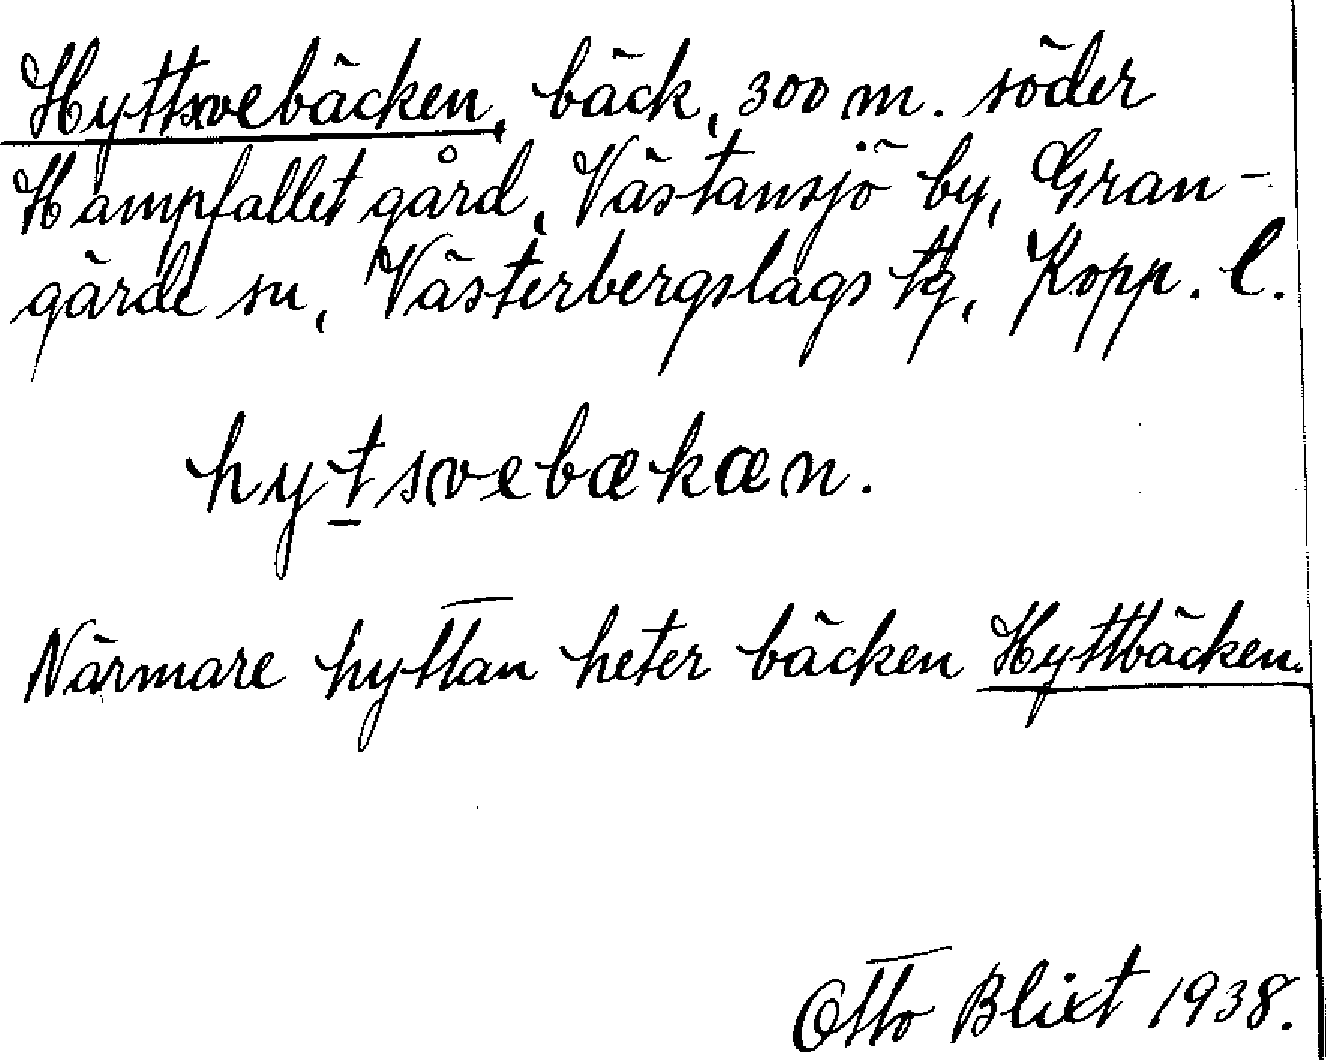 Hyttsvebäcken, bäck, 300 m. söder
Hampfallet gård, Västansjö by, Gran-
gärde sn, Västerbergslags tg, Kopp. l.
hyt̲svebækæn.
Närmare hyttan heter bäcken Hyttbäcken.
Otto Blixt 1938.